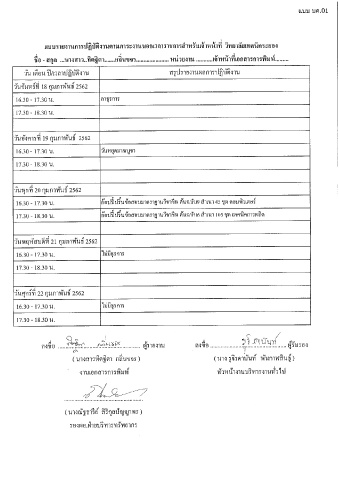 แบบ บค.01
แบบรายงานการปฏิบัติงานตามภาระงานนอกเวลาราชการสำหรับเจ้าหน้าที่ วิทยาลัยเทคนิคระยอง
ชื่อ - สกุล ...นางสาว...กลิ่นขจร... หน่วยงาน ...เจ้าหน้าที่เอกสารการพิมพ์...
วัน เดือน ปี/เวลาปฏิบัติงาน สรุปรายงานผลการปฏิบัติงาน
วันจันทร์ที่ 18 กุมภาพันธ์ 2562
16.30 - 17.30 น. ลาธุรการ
17.30 - 18.30 น.
วันอังคารที่ 19 กุมภาพันธ์ 2562
16.30 - 17.30 น. วันหยุดมาฆบูชา
17.30 - 18.30 น.
วันพุธที่ 20 กุมภาพันธ์ 2562
16.30 - 17.30 น. ข้อสอบมาตรฐานวิชาชีพ สำเนา 42 ชุด คอมพิวเตอร์
17.30 - 18.30 น. ข้อสอบมาตรฐานวิชาชีพ ชุด เทคนิคการผลิต
วันพฤหัสบดีที่ 21 กุมภาพันธ์ 2562
16.30 - 17.30 น. ไม่มีธุรการ
17.30 - 18.30 น.
วันศุกร์ที่ 22 กุมภาพันธ์ 2562
16.30 - 17.30 น. ไม่มีธุรการ
17.30 - 18.30 น.
ลงชื่อ ผู้รายงาน ลงชื่อ ผู้รับรอง
งานเอกสารการพิมพ์ หัวหน้างานบริหารงานทั่วไป
รองผอ.ฝ่ายบริหารทรัพยากร